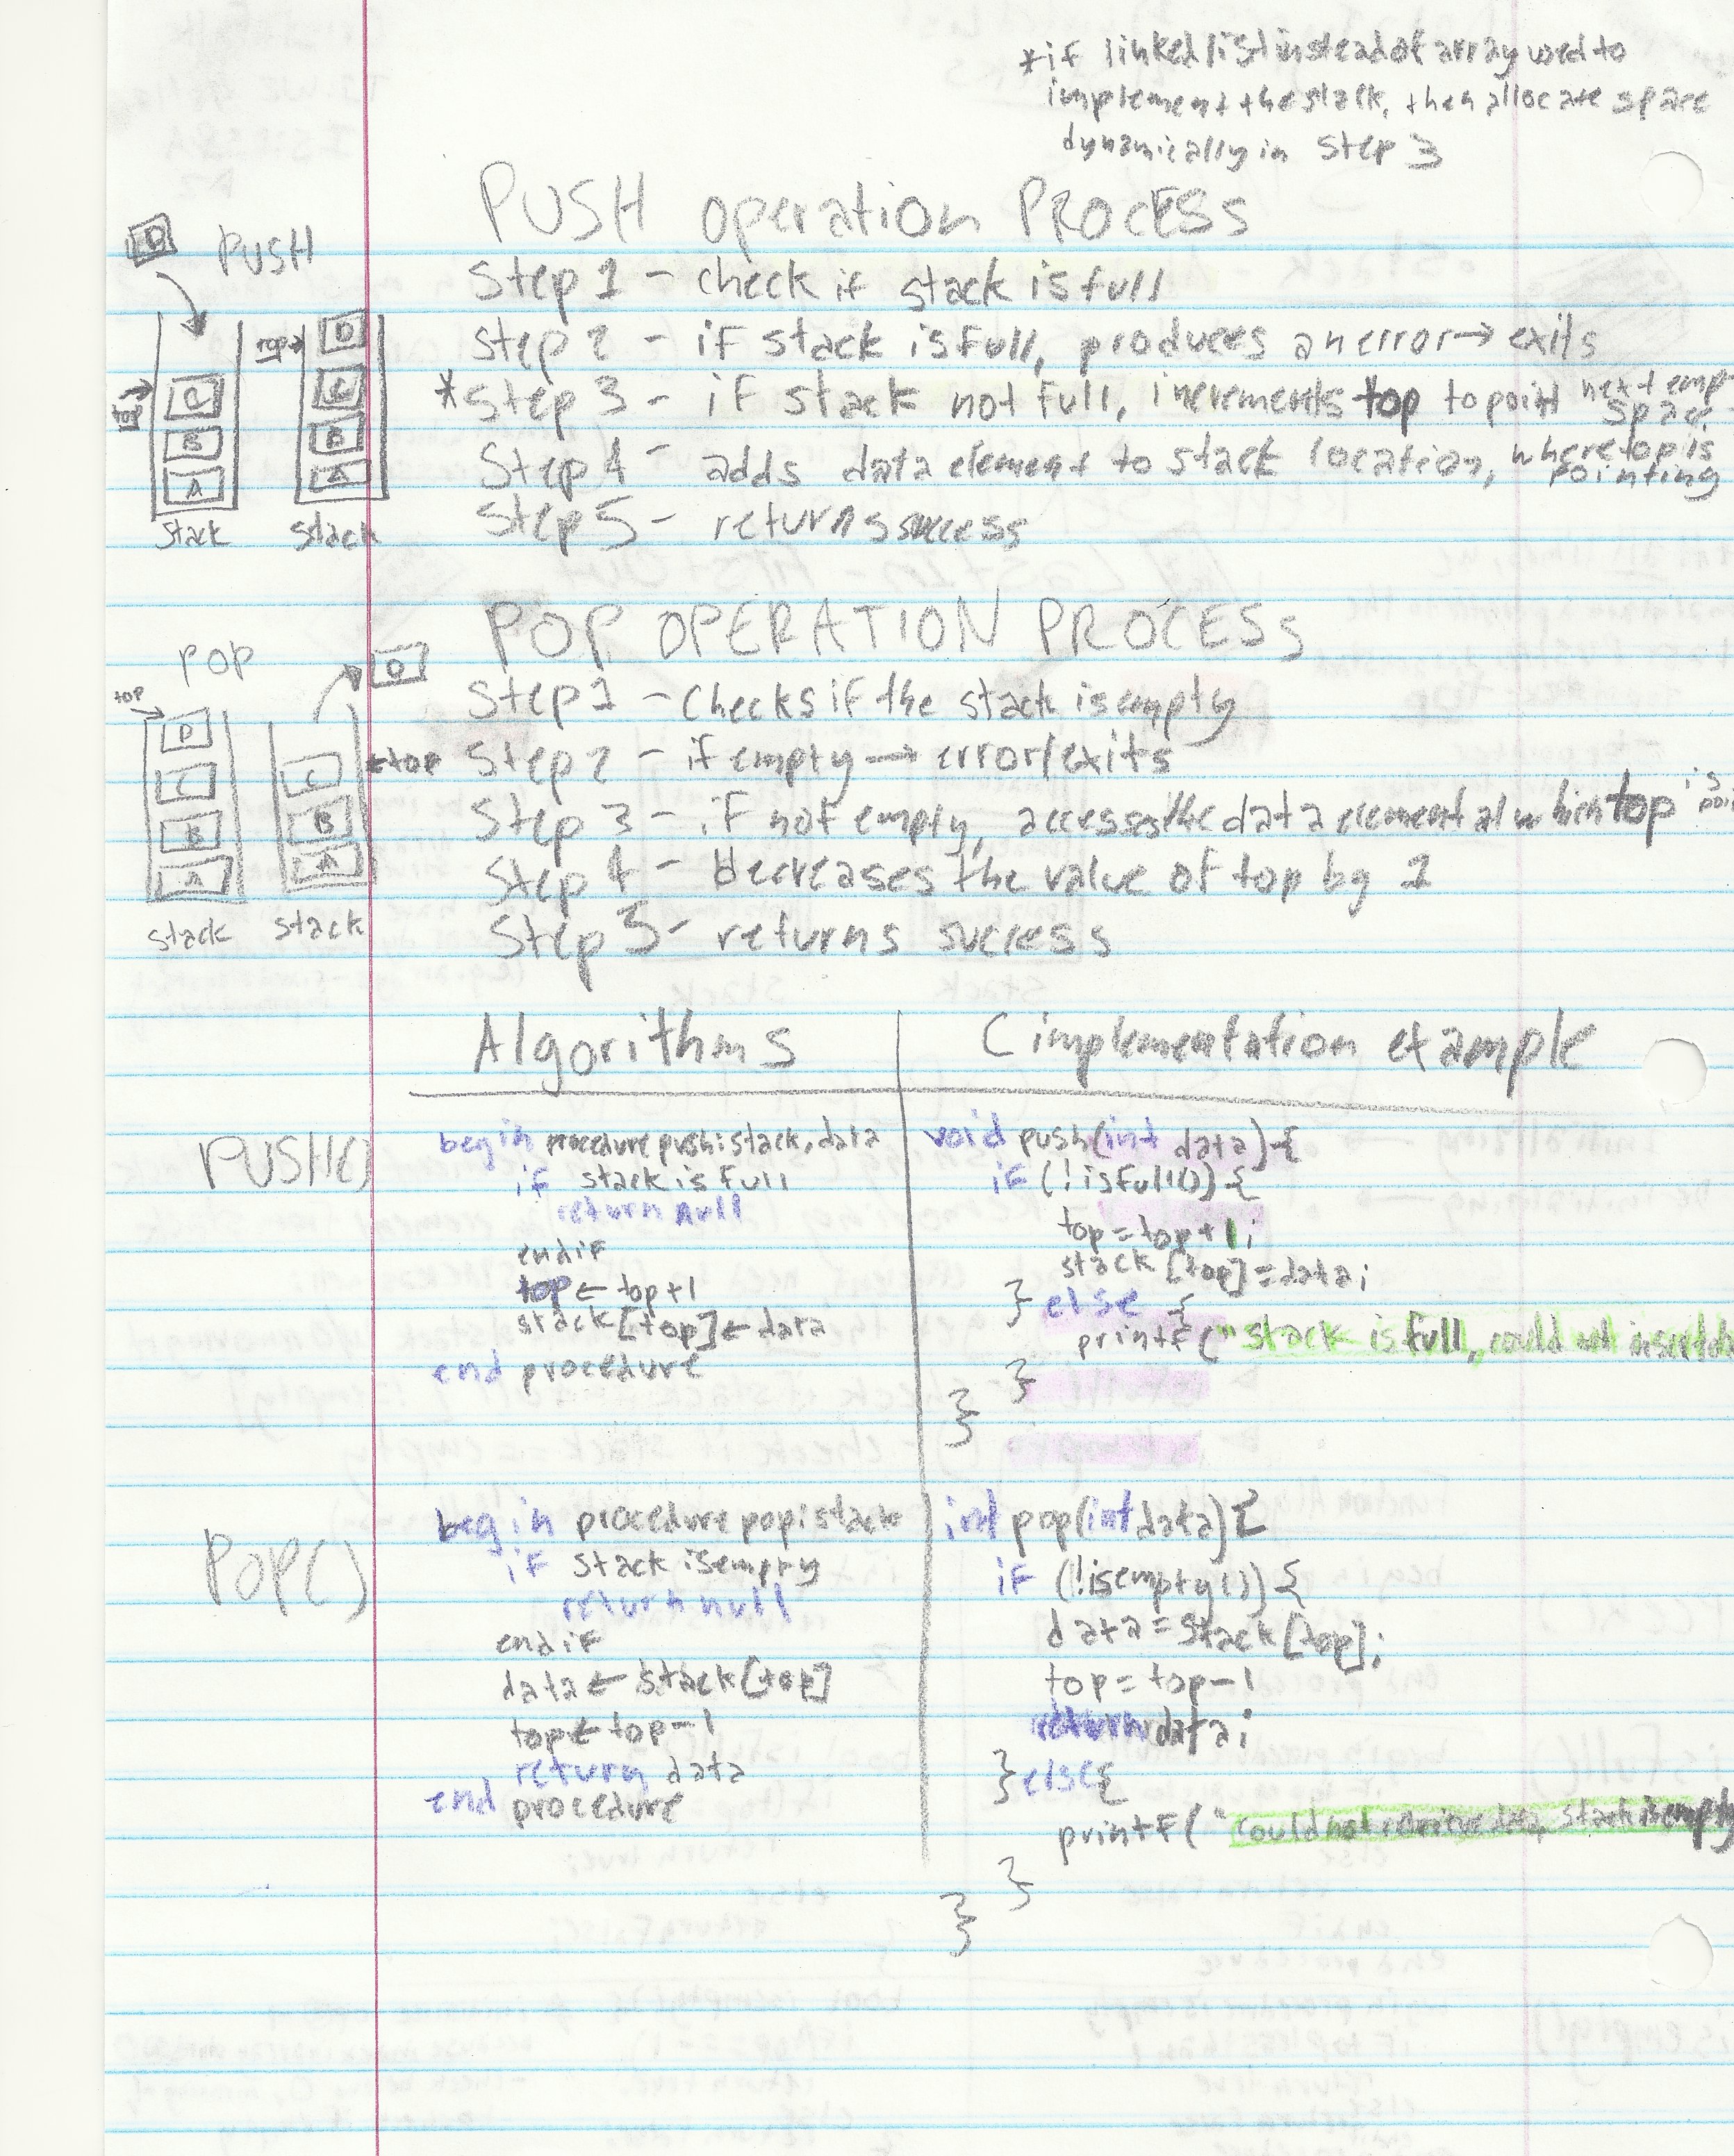 *if linked list instead of array used to
implement the stack, then allocate space
dynamically in Step 3
PUSH operation PROCESS
D PUSH
Step 1 - check if stack is full
Step 2 - if stack is full, produces an error → exits
*Step 3 - if stack not full, increments top to point next emp
space
Step 4 - adds data element to stack location, where top is
pointing
Step 5 - returns success
top C B A
stack
top D C B A
stack
POP OPERATION PROCESS
POP D
Step 1 - Checks if the stack is empty
Step 2 - if empty → error/exits
Step 3 - if not empty, accesses the data element at top is
Step 4 - decreases the value of top by 1
Step 5 - returns success
top D C B A
stack
C B A ←top
stack
Algorithms
C implementation example
PUSH()
begin procedure push: stack, data
if stack is full
return null
endif
top ← top+1
stack[top] ← data
end procedure
void push(int data){
if (!isfull()) {
top = top+1;
stack [top] = data;
} else {
printf("stack is full, could not insert
}
}
POP()
begin procedure pop: stack
if stack is empty
return null
endif
data ← stack[top]
top ← top-1
return data
end procedure
int pop(int data){
if (!isempty()) {
data = stack[top];
top = top-1
return data;
}else{
printf("Could not retrieve data, stack is empty
}
}